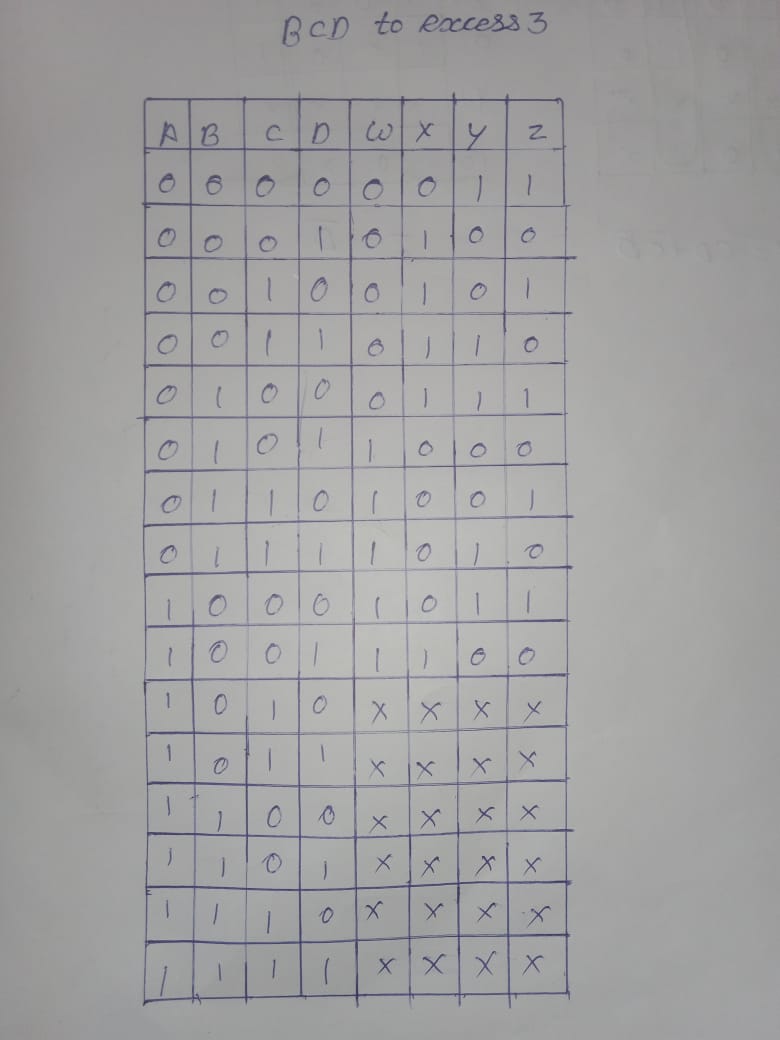 BCD to excess 3
A B C D W X Y Z
0 0 0 0 0 0 1 1
0 0 0 1 0 1 0 0
0 0 1 0 0 1 0 1
0 0 1 1 0 1 1 0
0 1 0 0 0 1 1 1
0 1 0 1 1 0 0 0
0 1 1 0 1 0 0 1
0 1 1 1 1 0 1 0
1 0 0 0 1 0 1 1
1 0 0 1 1 1 0 0
1 0 1 0 x x x x
1 0 1 1 x x x x
1 1 0 0 x x x x
1 1 0 1 x x x x
1 1 1 0 x x x x
1 1 1 1 x x x x